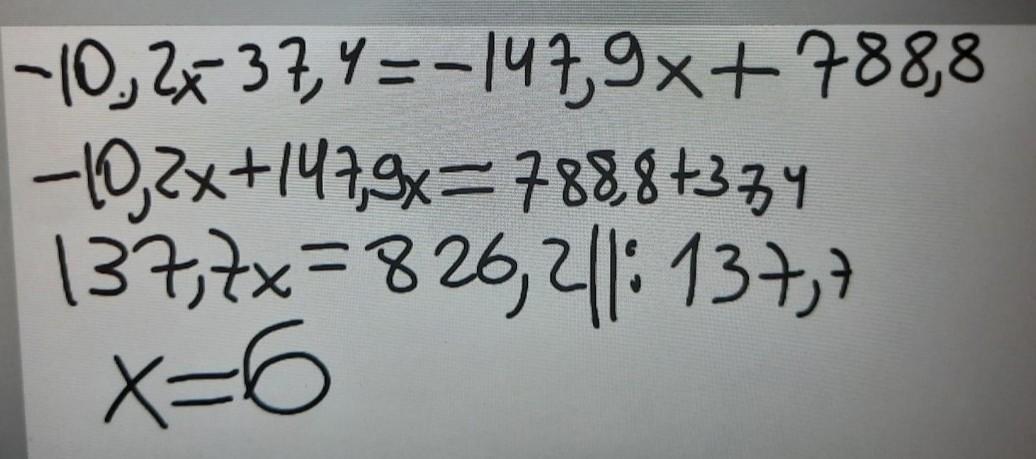 -10,2x-37,4=-147,9x+788,8
-10,2x+147,9x=788,8+37,4
137,7x=826,2||:137,7
x=6